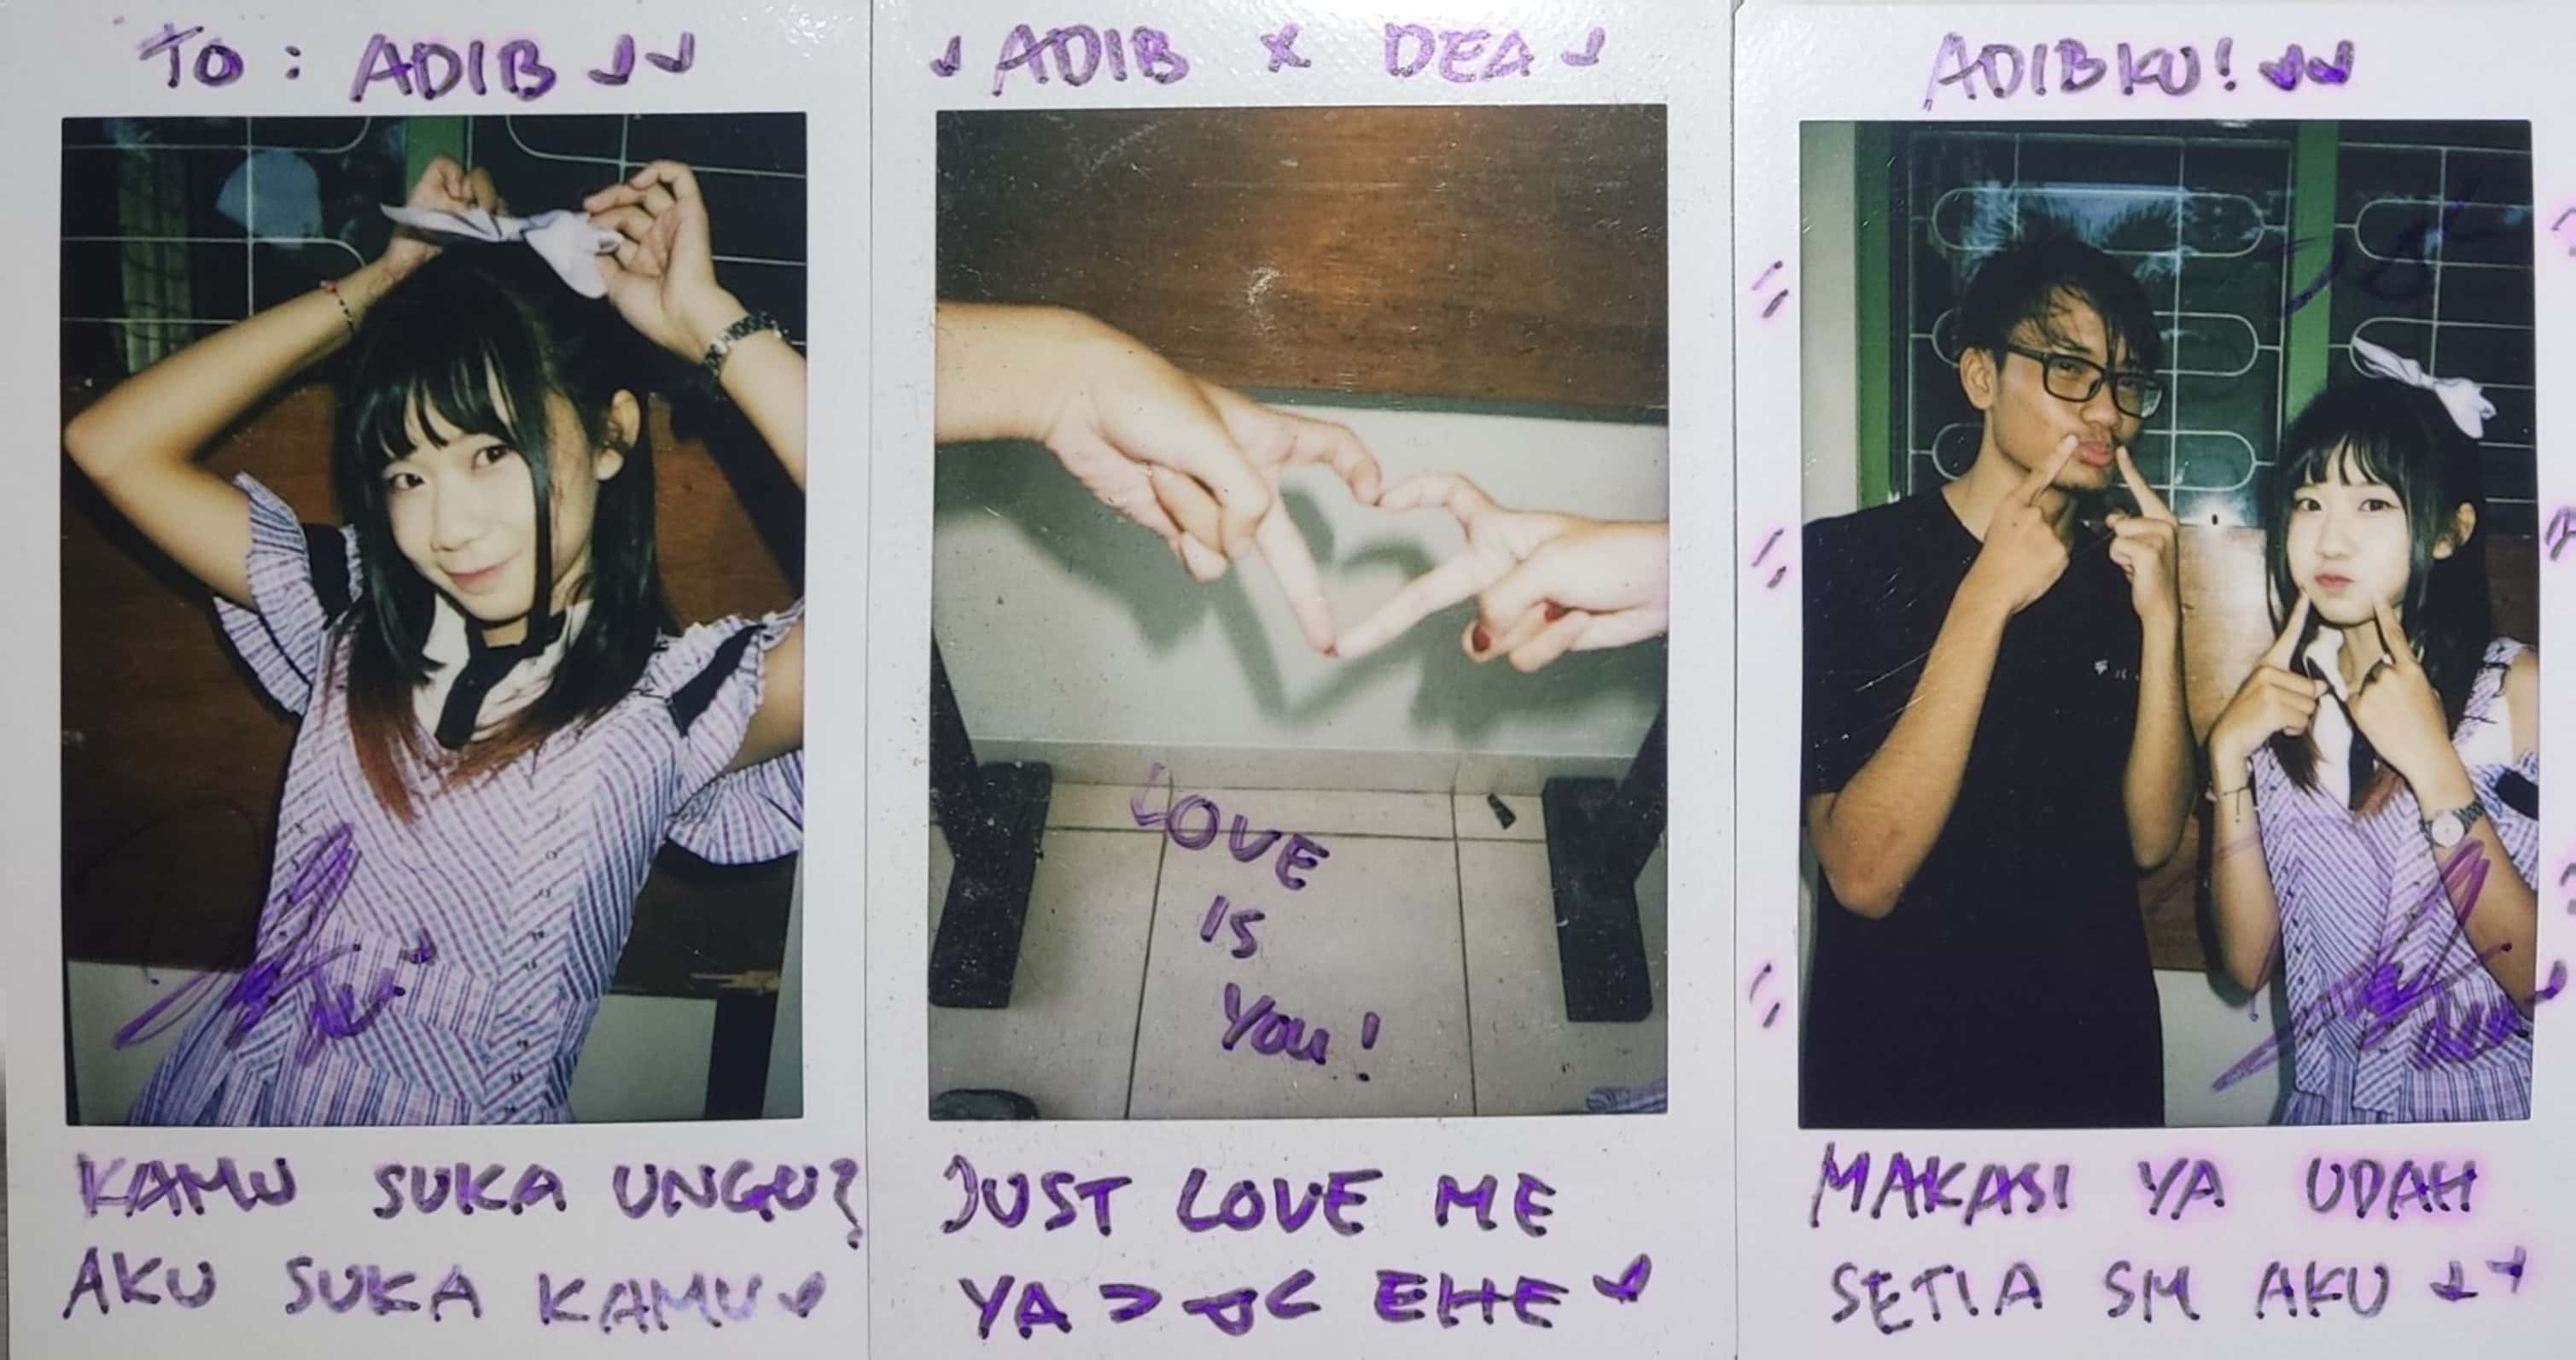 TO : ADIB
KAMU SUKA UNGU?
AKU SUKA KAMU
ADIB x DEA
LOVE
IS
YOU!
JUST LOVE ME
YA > < EHE
ADIBKU!
MAKASI YA UDAH
SETIA SM AKU